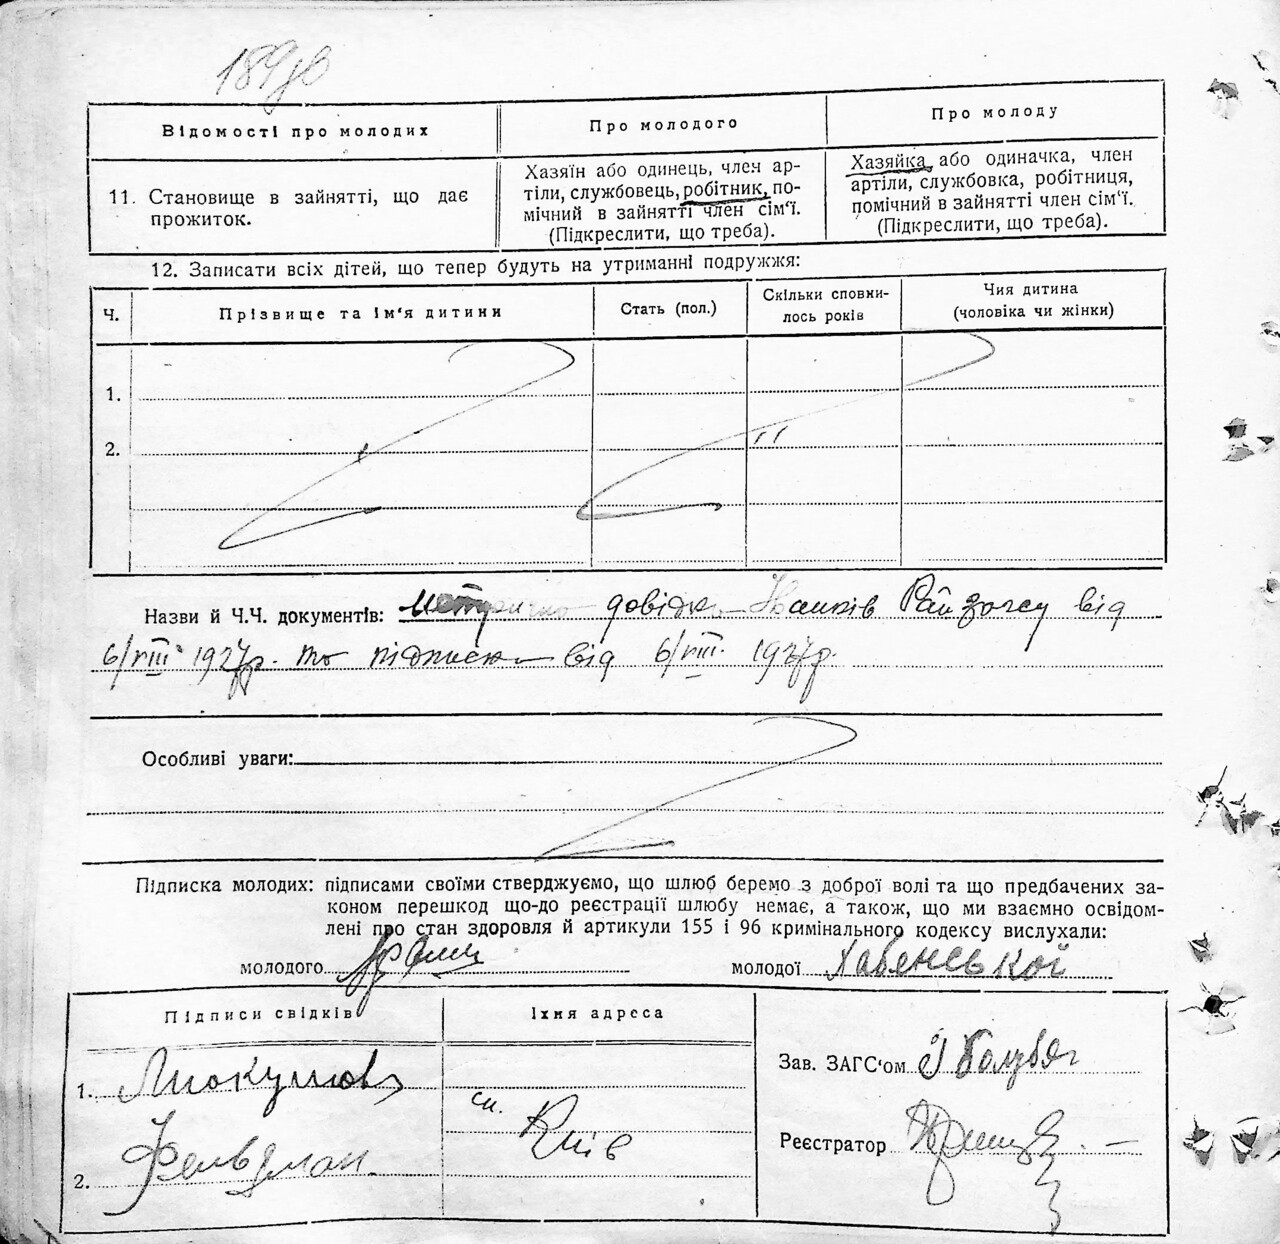 189зв
Відомості про молодих
Про молодого
Про молоду
11. Становище в зайнятті, що дає
прожиток.
Хазяїн або одинець, член ар-
тіли, службовець, робітник, по-
мічний в зайнятті член сім'ї.
(Підкреслити, що треба).
Хазяйка, або одиначка, член
артіли, службовка, робітниця,
помічний в зайнятті член сім'ї.
(Підкреслити, що треба).
12. Записати всіх дітей, що тепер будуть на утриманні подружжя:
Ч.
Прізвище та ім'я дитини
Стать (пол.)
Скільки сповни-
лось років
Чия дитина
(чоловіка чи жінки)
1.
2.
Назви й Ч.Ч. документів: довідка Іванків Рай загсу від
6/VIII 1927р. та підписка від 6/VIII. 1927р.
Особливі уваги:
Підписка молодих: підписами своїми стверджуємо, що шлюб беремо з доброї волі та що предбачених за-
коном перешкод що-до реєстрації шлюбу немає, а також, що ми взаємно освідом-
лені про стан здоровля й артикули 155 і 96 кримінального кодексу вислухали:
молодого
молодої Хабенської
Підписи свідків
Їхня адреса
1.
2. Фельдман
см. Київ
Зав. ЗАГС'ом
Реєстратор